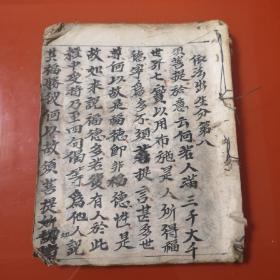 依法出生分第八
須菩提於意云何若人滿三千大千
世界七宝以用布施是人所得福
德寧為多不須菩提言甚多世
尊何以故是福德即非福德性是
故如來說福德多若復有人於此
經中受持乃至四句偈等為他人說
其福勝彼何以故須菩提